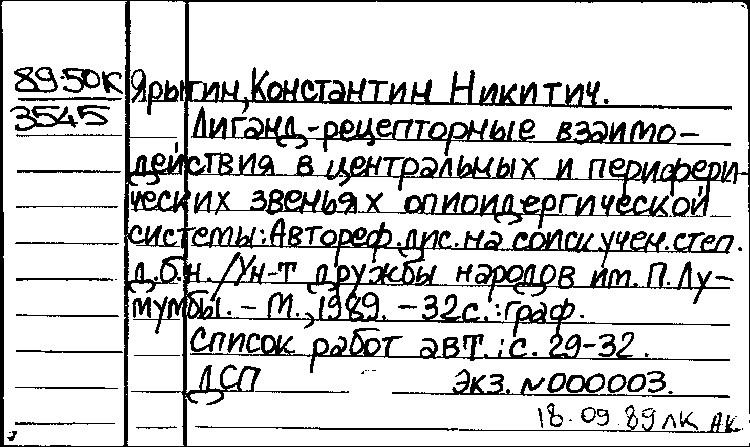 89-50К Ярыгин, Константин Никитич.
3545 Лиганд-рецепторные взаимо-
действия в центральных и перифери-
ческих звеньях опиоидергической
системы: Автореф. дис. на соиск. учен. степ.
д.б.н. /Ун-т дружбы народов им. П. Лу-
мумбы. - М., 1989. - 32с.: граф.
Список работ авт.: с. 29-32.
ДСП Экз. №000003.
18.09.89 ЛК АК.